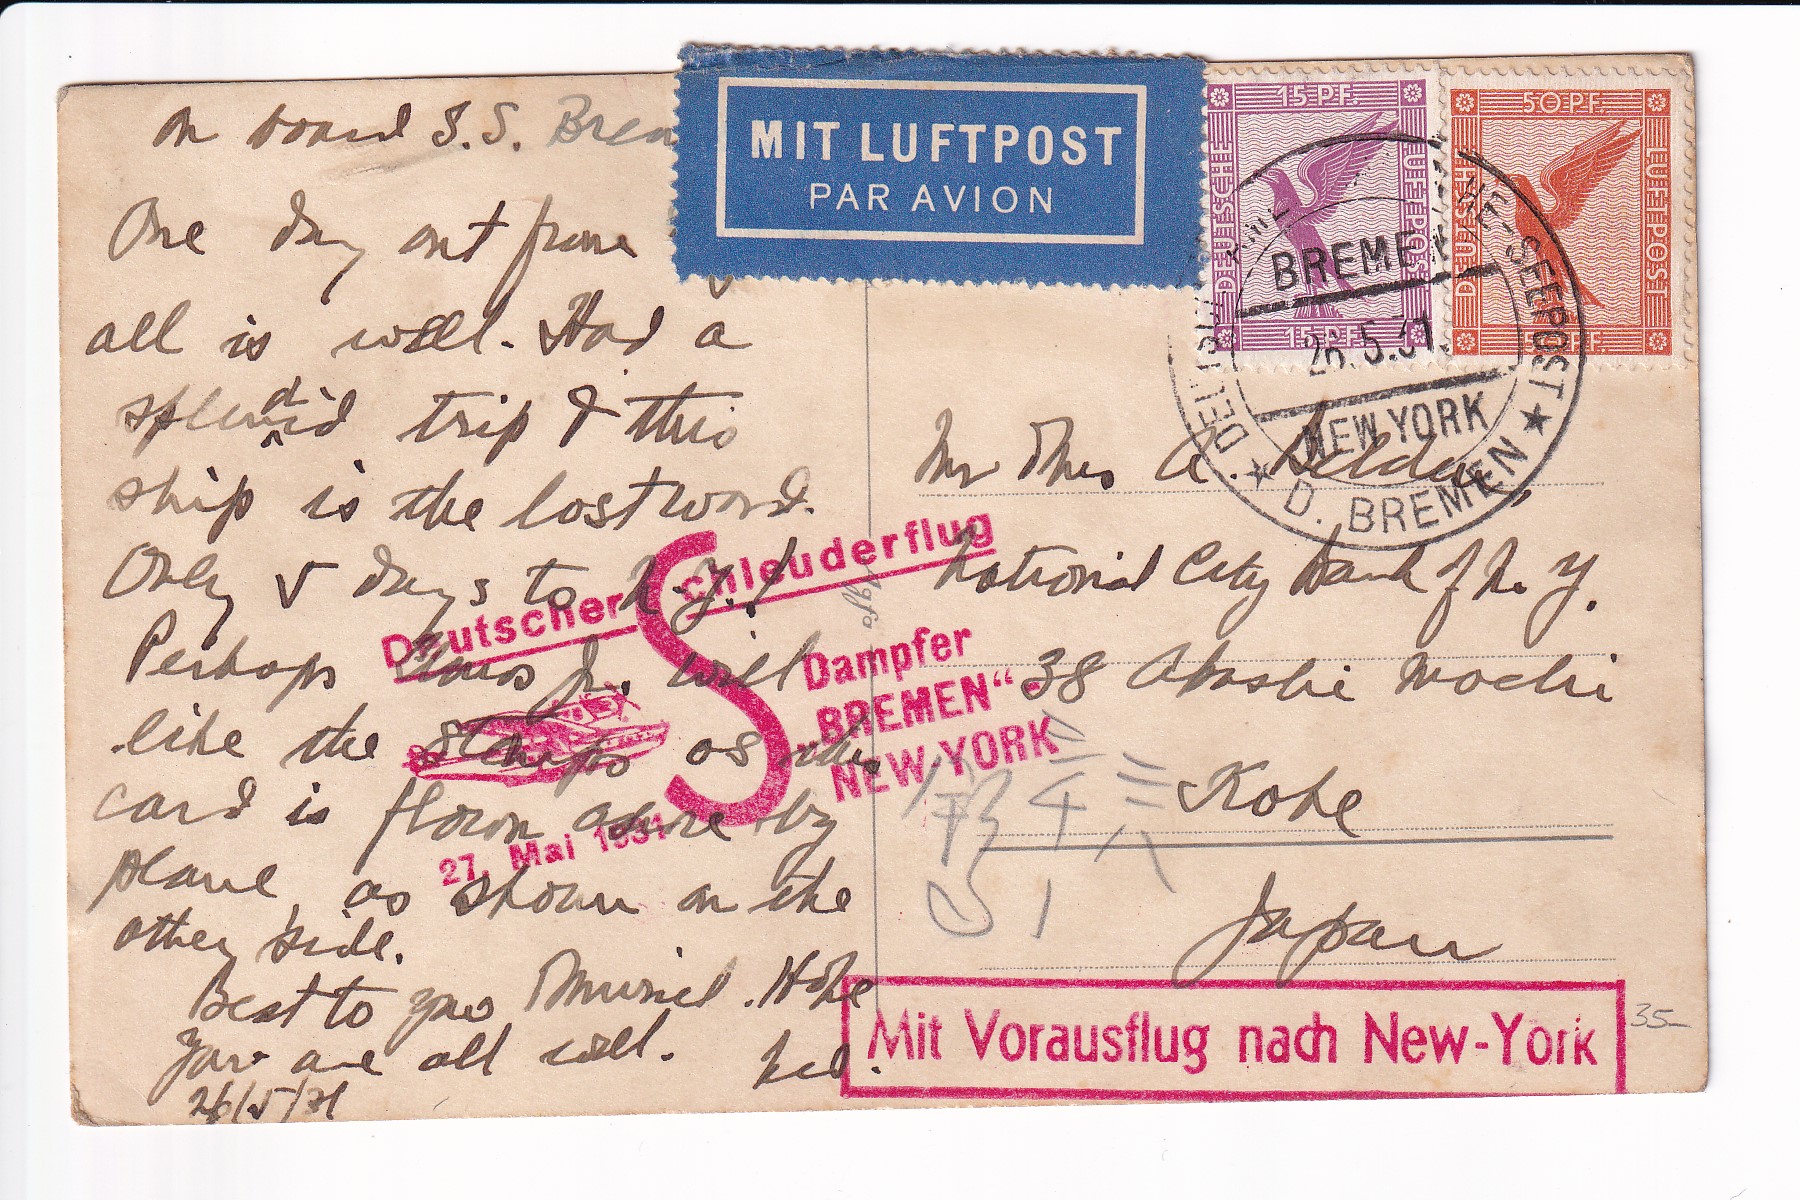 On board S.S. Brem
MIT LUFTPOST
PAR AVION
15 PF.
DEUTSCHE
LUFTPOST
15 PF.
50 PF.
DEUTSCHE
LUFTPOST
BREMEN
26.5.31.
NEW YORK
-SEEPOST
D. BREMEN
One day out from
all is well. Had a
splendid trip & this
ship is the last word.
Only 5 days to N.Y.!
Perhaps Jr. will
like the stamps as this
card is flown ashore by
plane, as shown on the
other side.
Best to you Muriel. Hope
you are all well.
26/5/31
Deutscher Schleuderflug
Dampfer
„BREMEN“-
NEW-YORK
27. Mai 1931
Agfa
Mr Thos A.
National City Bank of N.Y.
38 Akashi Machi
Kobe
Japan
Mit Vorausflug nach New-York
35-